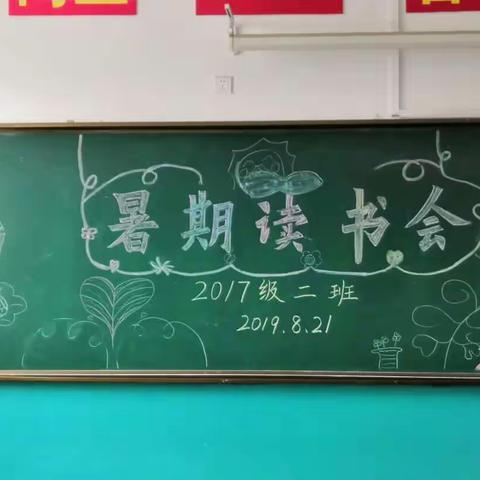 暑期读书会
2017级二班
2019.8.21